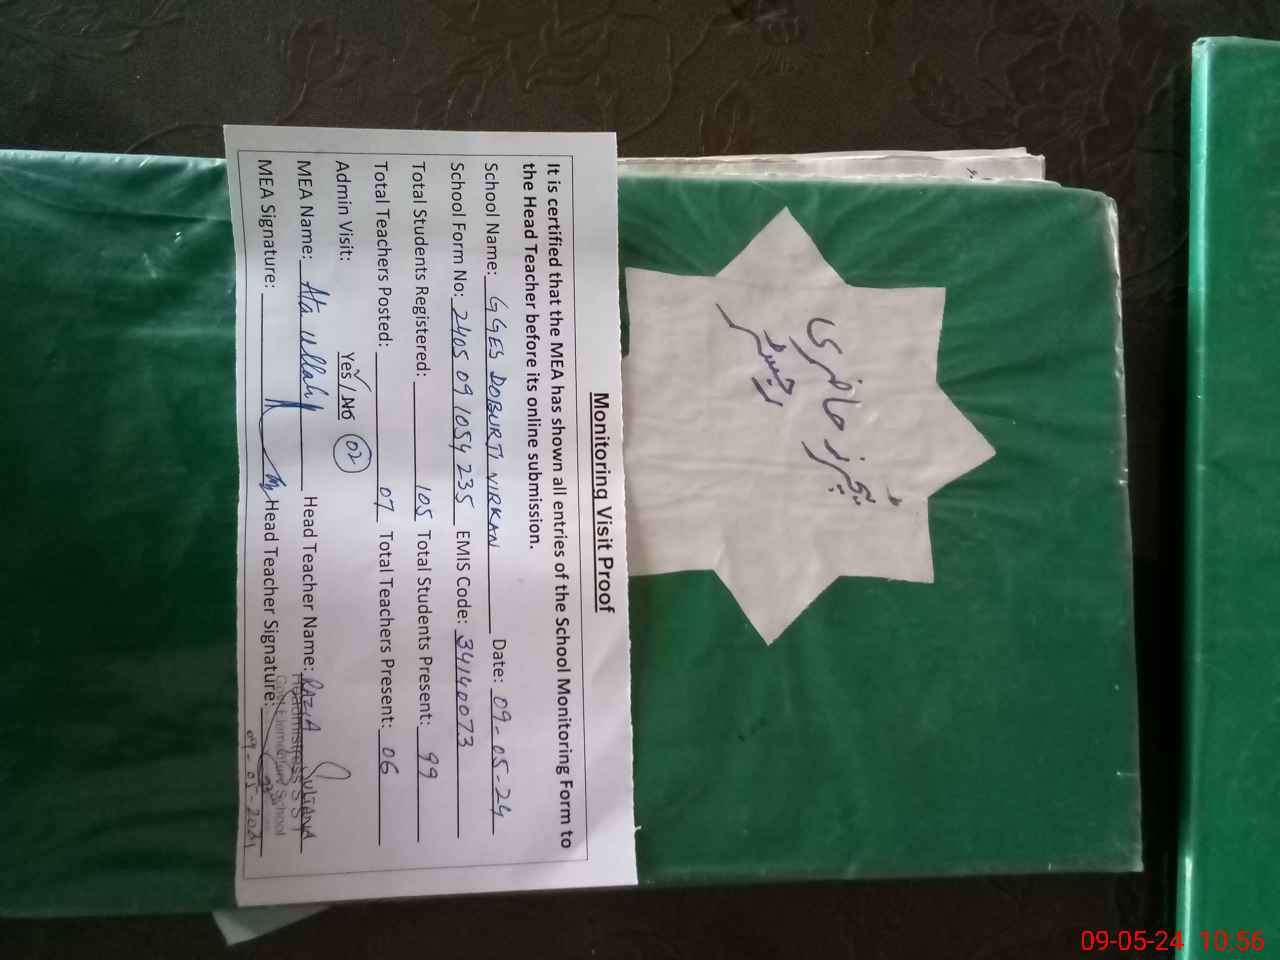 Monitoring Visit Proof
It is certified that the MEA has shown all entries of the School Monitoring Form to
the Head Teacher before its online submission.
School Name: GGES DOBURTI VIRKAN Date: 09-05-24
School Form No: 2405 09 1054 235 EMIS Code: 34140073
Total Students Registered: 105 Total Students Present: 99
Total Teachers Posted: 07 Total Teachers Present: 06
Admin Visit: Yes / No 02
MEA Name: Ata Ullah Head Teacher Name: RAZIA SULTANA
MEA Signature: Head Teacher Signature:
Headmistress SST
Govt Elementary School
09-05-2024
ٹیچرز حاضری
رجسٹر
09-05-24 10:56